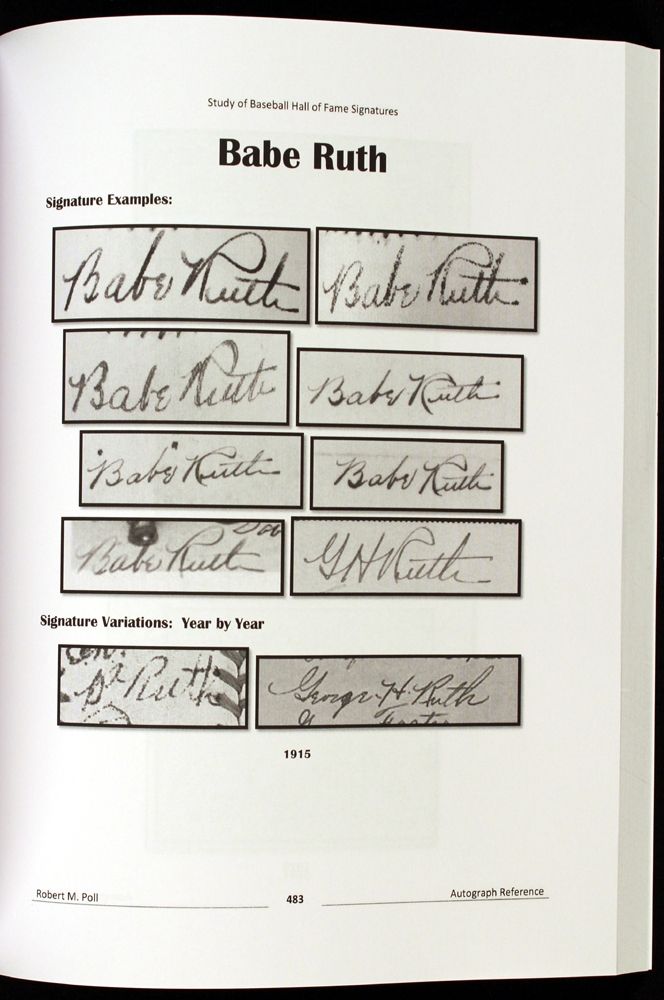 Study of Baseball Hall of Fame Signatures
Babe Ruth
Signature Examples:
Babe Ruth
Babe Ruth
Babe Ruth
Babe Ruth
Babe Ruth
Babe Ruth
Babe Ruth
G H Ruth
Signature Variations: Year by Year
Ruth
George H. Ruth
1915
Robert M. Poll
483
Autograph Reference